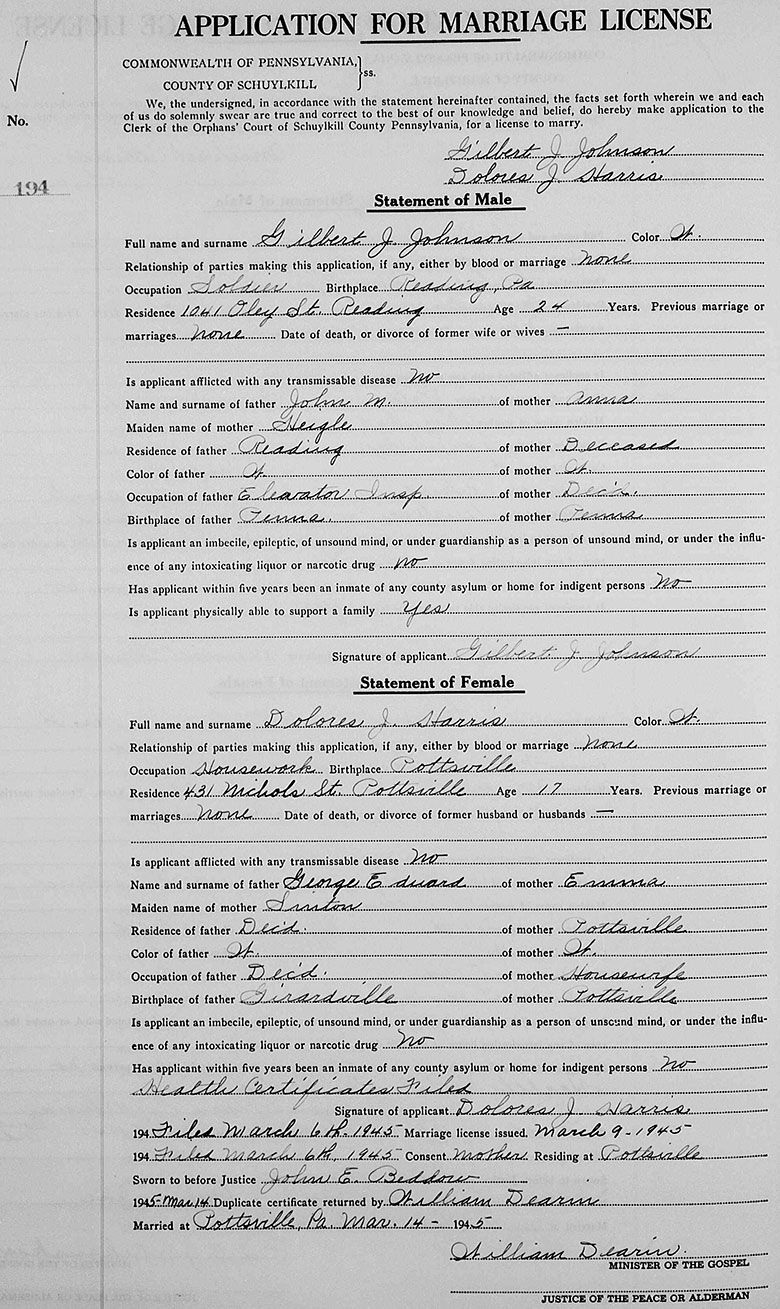 APPLICATION FOR MARRIAGE LICENSE
COMMONWEALTH OF PENNSYLVANIA,
COUNTY OF SCHUYLKILL } ss.
No.
194
We, the undersigned, in accordance with the statement hereinafter contained, the facts set forth wherein we and each
of us do solemnly swear are true and correct to the best of our knowledge and belief, do hereby make application to the
Clerk of the Orphans' Court of Schuylkill County Pennsylvania, for a license to marry.
Gilbert J Johnson
Dolores J. Harris
Statement of Male
Full name and surname Gilbert J Johnson Color W.
Relationship of parties making this application, if any, either by blood or marriage None
Occupation Soldier Birthplace Reading, Pa
Residence 1041 Oley St. Reading Age 24 Years. Previous marriage or
marriages None Date of death, or divorce of former wife or wives —
Is applicant afflicted with any transmissable disease No
Name and surname of father John M. of mother Anna
Maiden name of mother Heigle
Residence of father Reading of mother Deceased
Color of father W. of mother W.
Occupation of father Elevator Insp. of mother Dec'd.
Birthplace of father Penna. of mother Penna
Is applicant an imbecile, epileptic, of unsound mind, or under guardianship as a person of unsound mind, or under the influ-
ence of any intoxicating liquor or narcotic drug No
Has applicant within five years been an inmate of any county asylum or home for indigent persons No
Is applicant physically able to support a family Yes
Signature of applicant Gilbert J Johnson
Statement of Female
Full name and surname Dolores J. Harris Color W.
Relationship of parties making this application, if any, either by blood or marriage None
Occupation Housework Birthplace Pottsville
Residence 431 Nichols St. Pottsville Age 17 Years. Previous marriage or
marriages None Date of death, or divorce of former husband or husbands —
Is applicant afflicted with any transmissable disease No
Name and surname of father George Edward of mother Emma
Maiden name of mother
Residence of father Dec'd. of mother Pottsville
Color of father W. of mother W.
Occupation of father Dec'd. of mother Housewife
Birthplace of father Girardville of mother Pottsville
Is applicant an imbecile, epileptic, of unsound mind, or under guardianship as a person of unsound mind, or under the influ-
ence of any intoxicating liquor or narcotic drug No
Has applicant within five years been an inmate of any county asylum or home for indigent persons No
Health Certificates Filed
Signature of applicant Dolores J Harris
194 Filed March 6th. 1945 Marriage license issued. March 9-1945
194 Filed March 6th, 1945 Consent Mother Residing at Pottsville
Sworn to before Justice John E. Beddow
1945-Mar 14 Duplicate certificate returned by William Dearin
Married at Pottsville, Pa. Mar. 14 - 1945
William Dearin.
MINISTER OF THE GOSPEL
JUSTICE OF THE PEACE OR ALDERMAN